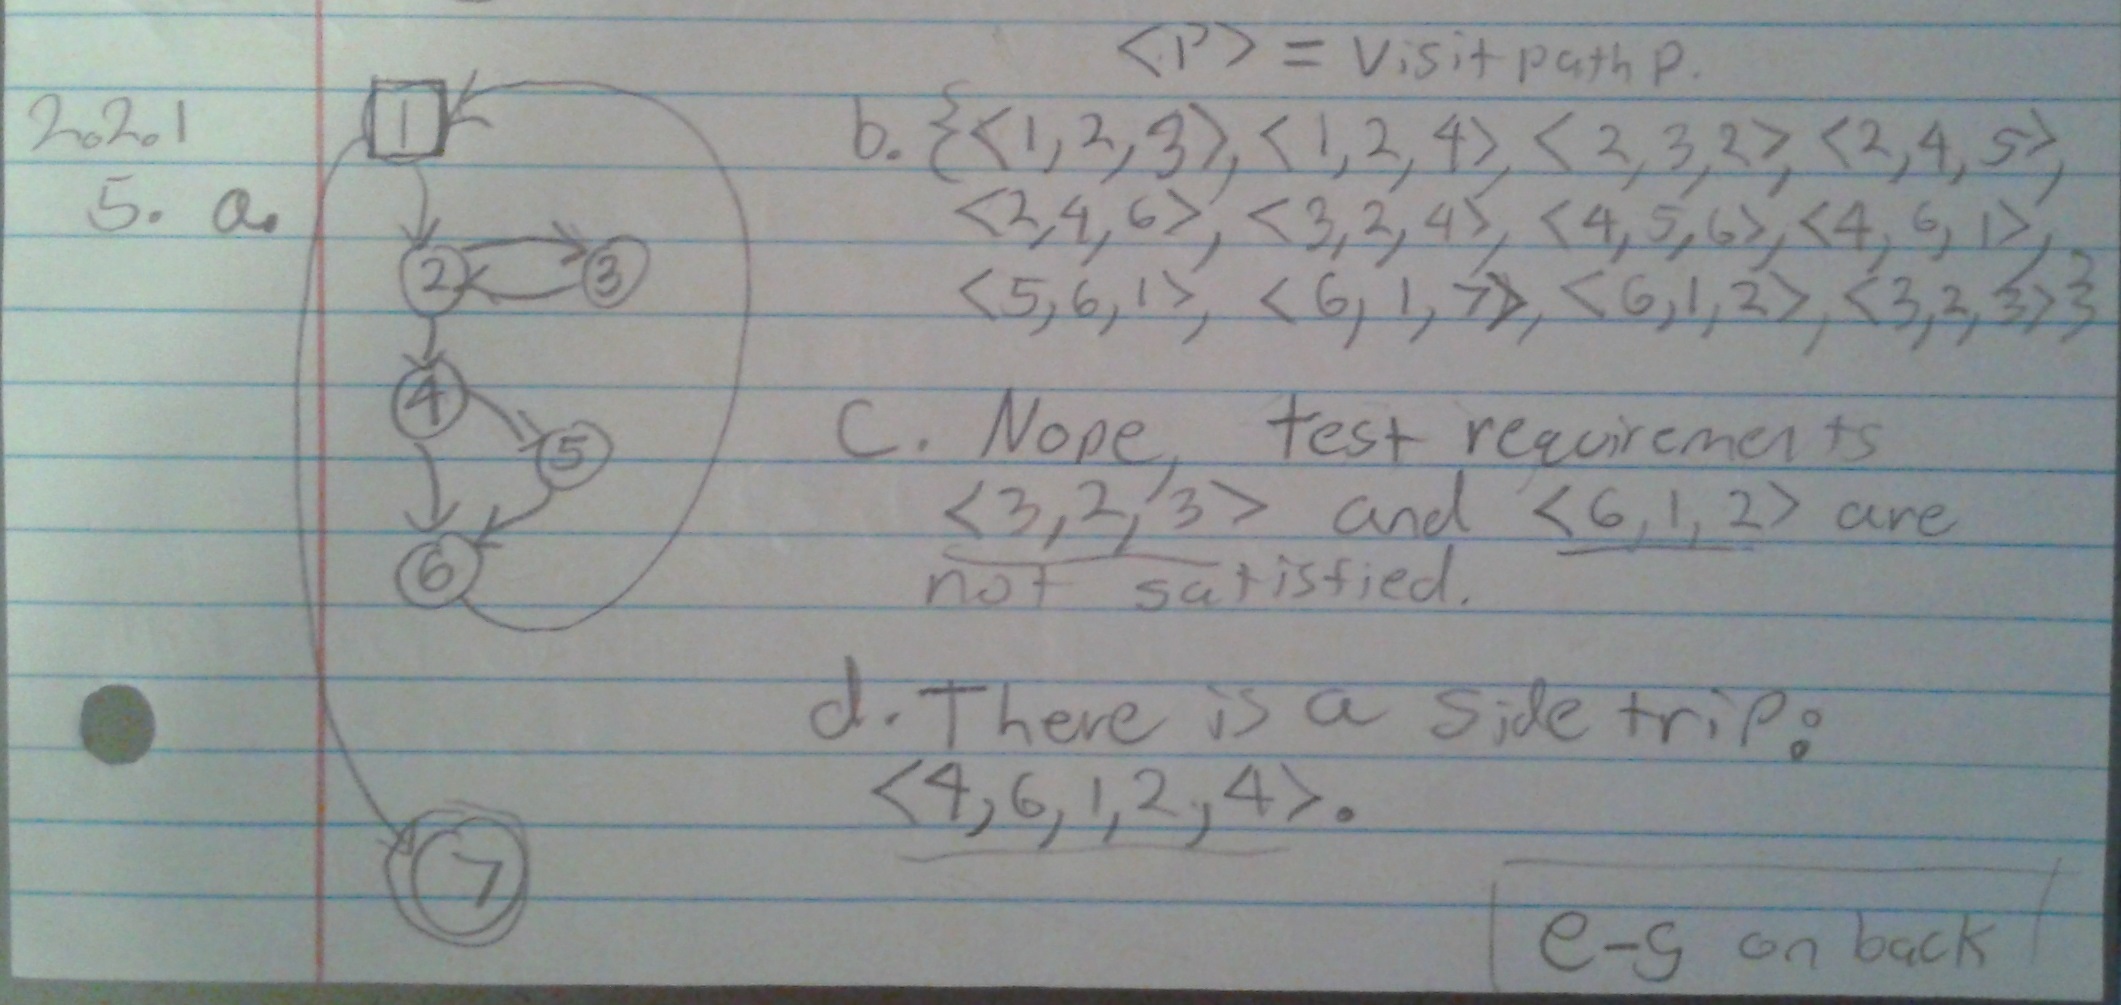 <P> = visit path p.
2.2.1
5. a.
1
2
3
4
5
6
7
b. {<1,2,3>, <1,2,4>, <2,3,2>, <2,4,5>,
<2,4,6>, <3,2,4>, <4,5,6>, <4,6,1>,
<5,6,1>, <6,1,7>, <6,1,2>, <3,2,3>}
C. Nope, test requirements
<3,2,3> and <6,1,2> are
not satisfied.
d. There is a side trip:
<4,6,1,2,4>.
e-g on back